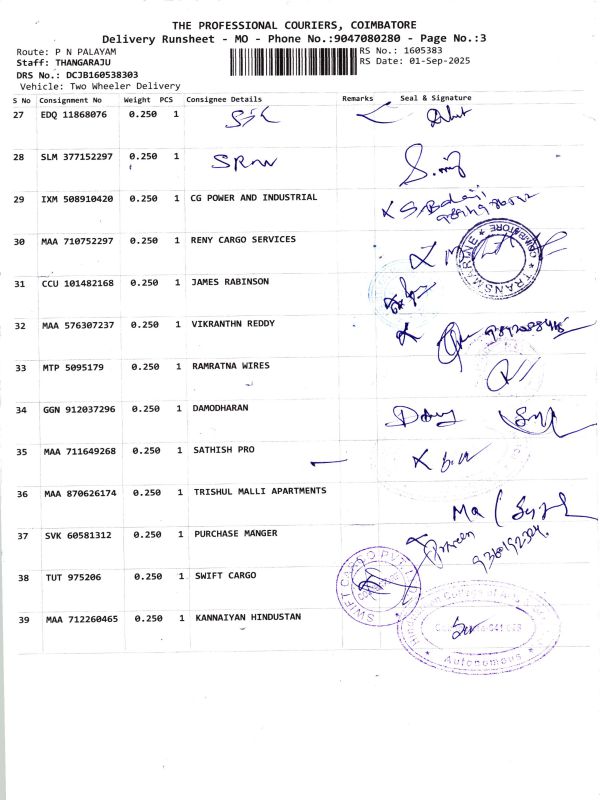 THE PROFESSIONAL COURIERS, COIMBATORE
Delivery Runsheet - MO - Phone No.:9047080280 - Page No.:3
Route: P N PALAYAM RS No.: 1605383
Staff: THANGARAJU RS Date: 01-Sep-2025
DRS No.: DCJB160538303
Vehicle: Two Wheeler Delivery
S No Consignment No Weight PCS Consignee Details Remarks Seal & Signature
27 EDQ 11868076 0.250 1
28 SLM 377152297 0.250 1
29 IXM 508910420 0.250 1 CG POWER AND INDUSTRIAL S. Balaji
30 MAA 710752297 0.250 1 RENY CARGO SERVICES TRANSMARINE COIMBATORE
31 CCU 101482168 0.250 1 JAMES RABINSON
32 MAA 576307237 0.250 1 VIKRANTHN REDDY
33 MTP 5095179 0.250 1 RAMRATNA WIRES
34 GGN 912037296 0.250 1 DAMODHARAN
35 MAA 711649268 0.250 1 SATHISH PRO
36 MAA 870626174 0.250 1 TRISHUL MALLI APARTMENTS
37 SVK 60581312 0.250 1 PURCHASE MANGER Praveen
38 TUT 975206 0.250 1 SWIFT CARGO SWIFT CARGO PVT.
39 MAA 712260465 0.250 1 KANNAIYAN HINDUSTAN Autonomous